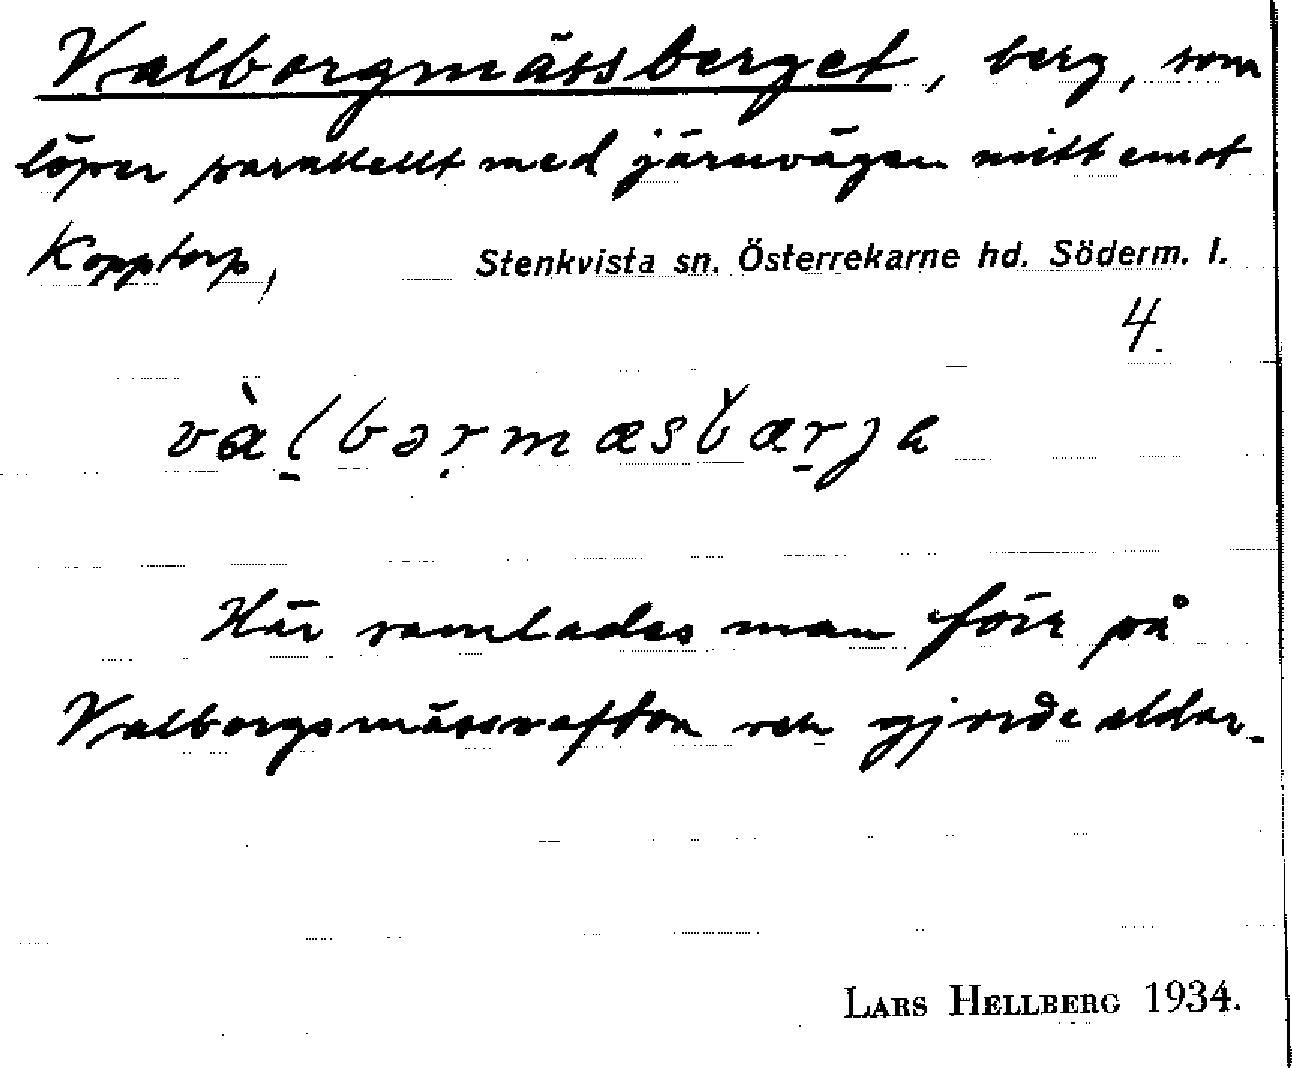 Valborgmässberget, berg, som
löper parallellt med järnvägen mitt emot
Kopptorp, Stenkvista sn. Österrekarne hd. Söderm. l.
4
vàl̠bərmæsb̌ær̠ja
Här samlades man förr på
Valborgsmässoafton och gjorde eldar.
LARS HELLBERG 1934.